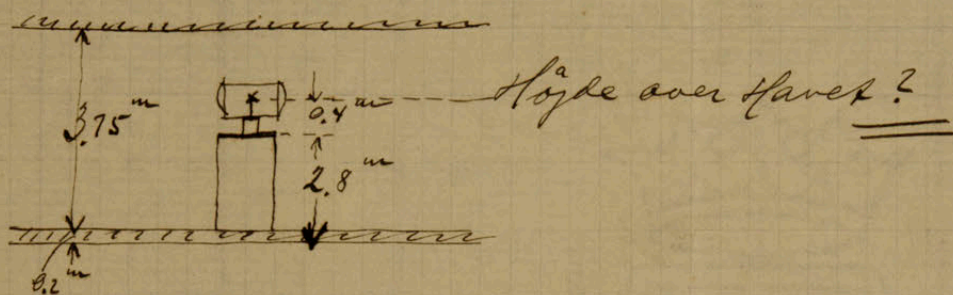 3.75 m
0.4 m
Højde over Havet?
2.8 m
0.2 m